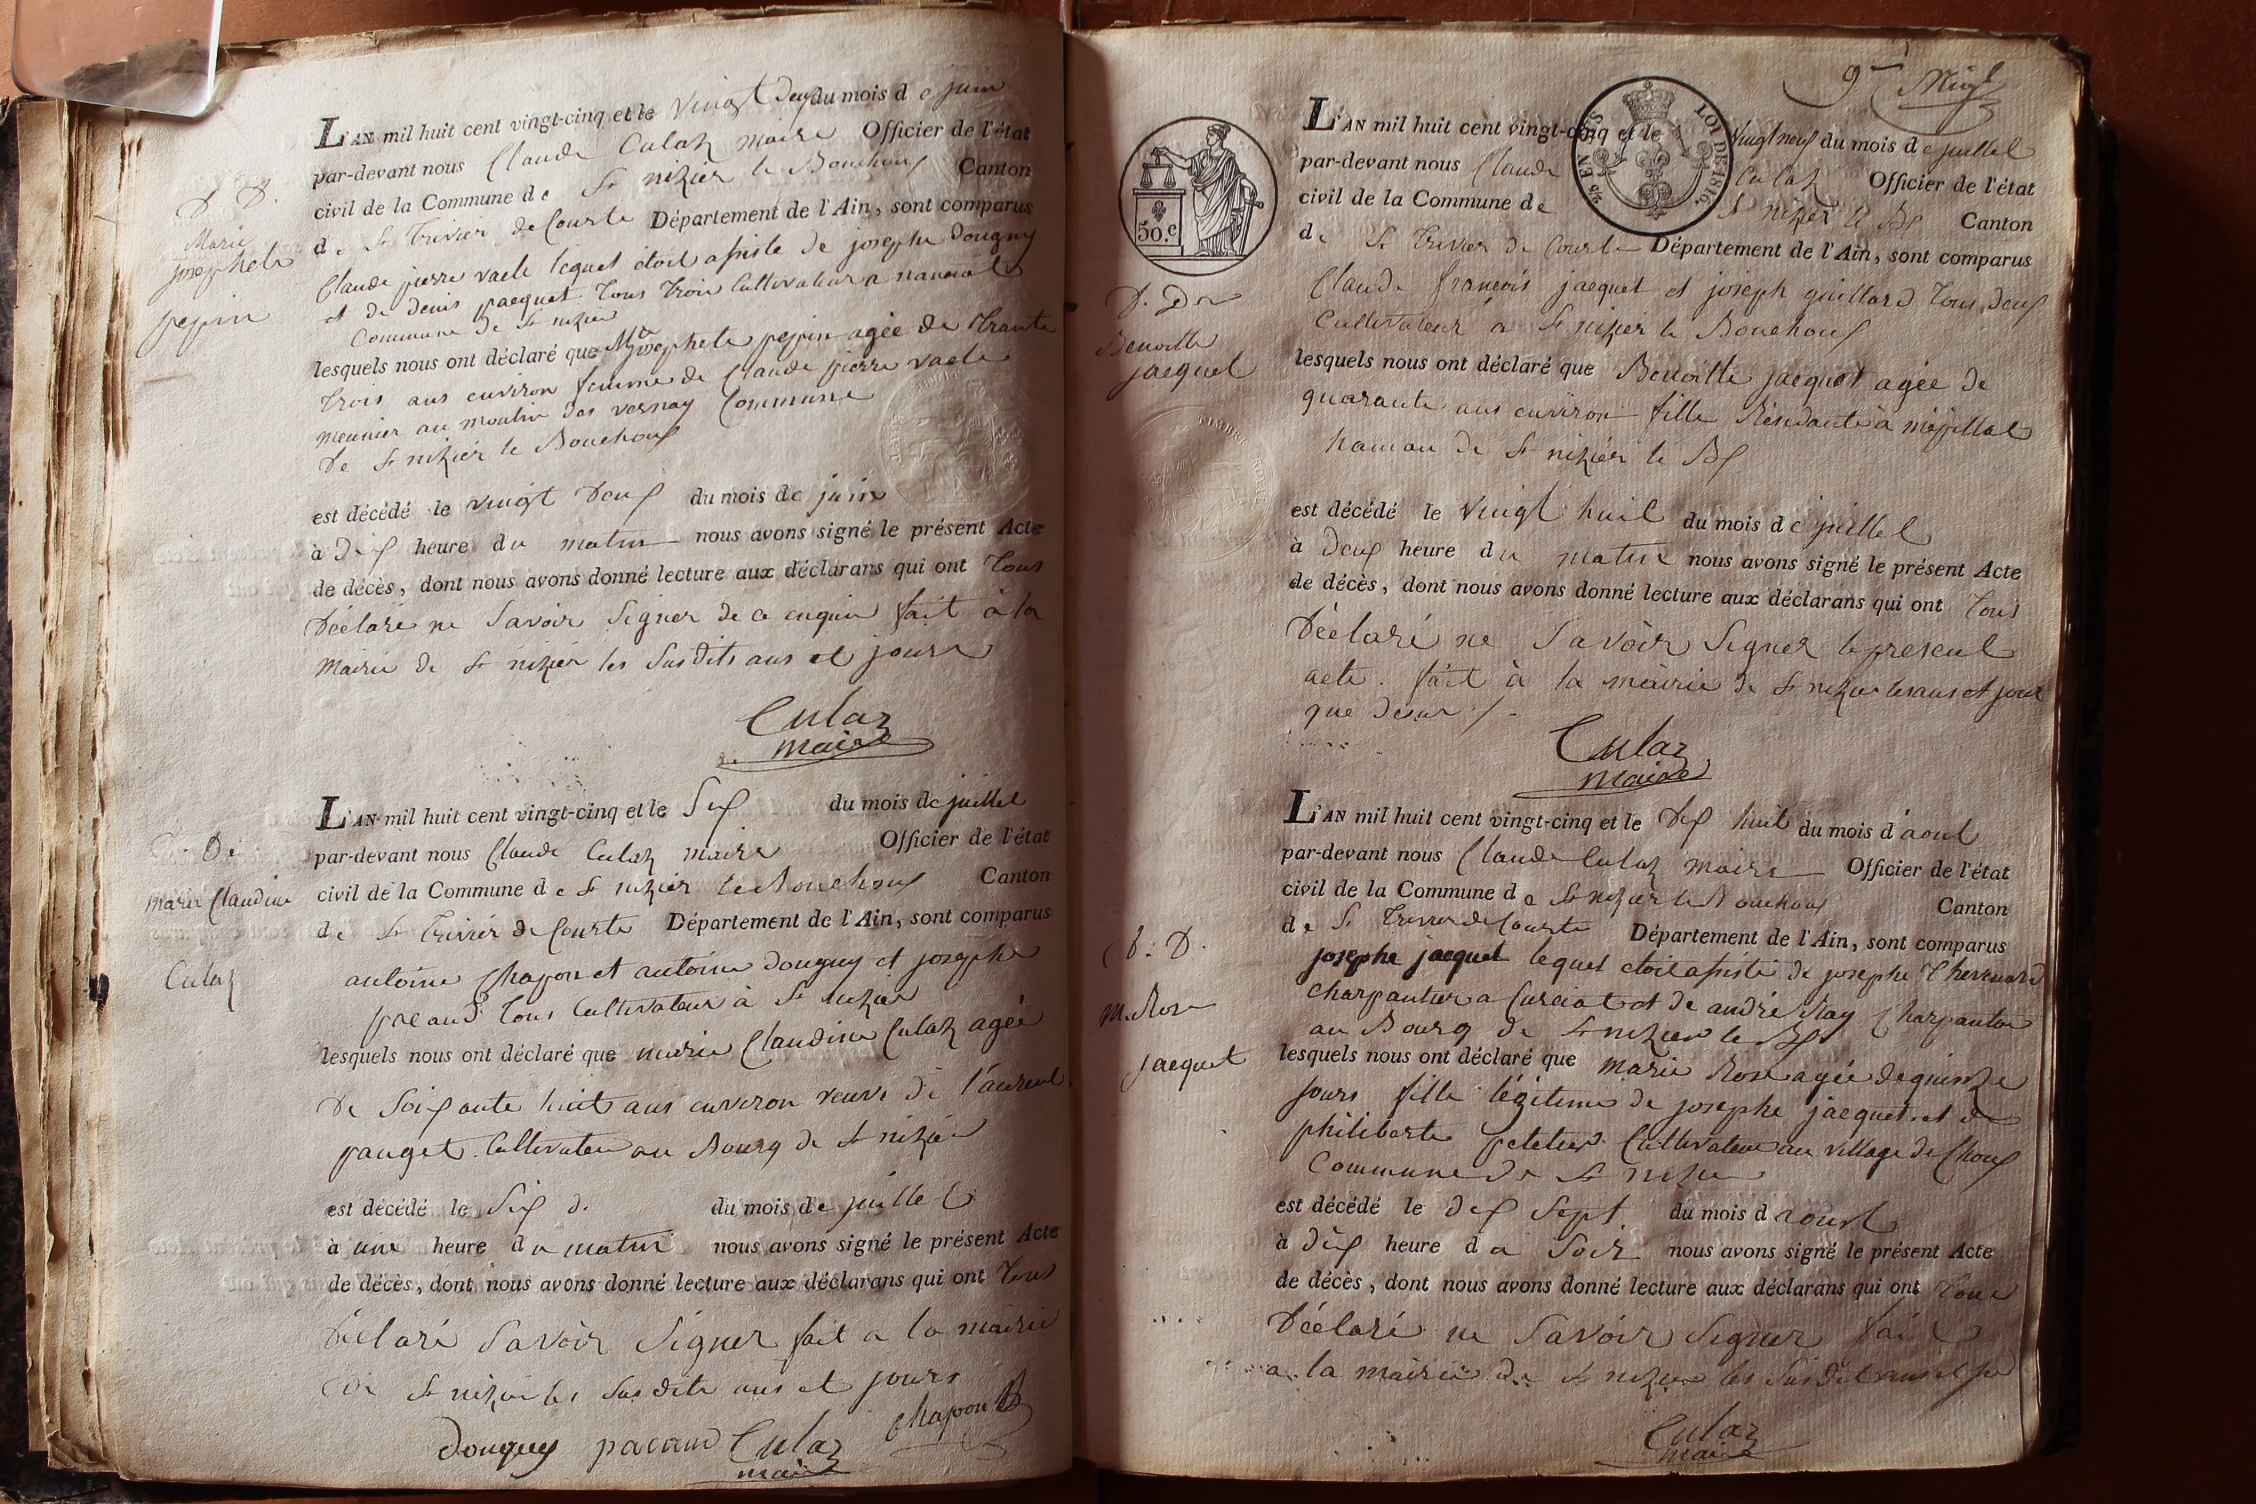 D. D.
Marie
josephete
pepin
L'AN mil huit cent vingt-cinq et le vingt deux du mois de juin
par-devant nous Claude Culaz maire Officier de l'état
civil de la Commune de St nizier le Bouchoux Canton
de St Trivier de Courte Département de l'Ain, sont comparus
Claude pierre vaele lequel etoit assiste de josephe dougny
et de denis jacquet tous trois Cultivateur a
Commune de St nizier
lesquels nous ont déclaré que Mie josephete pepin agée de trante
trois ans environ femme de Claude pierre vaele
meunier au moulin des vernay Commune
de St nizier le Bouchoux
est décédé le vingt deux du mois de juin
à dix heure du matin nous avons signé le présent Acte
de décès, dont nous avons donné lecture aux déclarans qui ont tous
déclaré ne savoir signer de ce enquis fait à la
mairie de St nizier les susdits ans et jours
Culaz
maire
D. De
marie Claudine
Culaz
L'AN mil huit cent vingt-cinq et le six du mois de juillet
par-devant nous Claude Culaz maire Officier de l'état
civil de la Commune de St nizier le Bouchoux Canton
de St Trivier de Courte Département de l'Ain, sont comparus
antoine Chapon et antoine douguy et josephe
pacaud tous Cultivateur à St nizier
lesquels nous ont déclaré que marie Claudine Culaz agée
de soixante huit ans environ veuve de laurent
pauget Cultivateur au Bourg de St nizier
est décédé le six d. du mois de juillet
à une heure du matin nous avons signé le présent Acte
de décès, dont nous avons donné lecture aux déclarans qui ont tous
déclaré savoir signer fait a la mairie
de St nizier les susdits ans et jours
douguy pacaud Culaz Chapon
maire
9
TIMBRE ROYAL
LOI DE 1816.
50.c
D. De
Benoitte
jacquet
L'AN mil huit cent vingt-cinq et le vingt neuf du mois de juillet
par-devant nous Claude Culaz Officier de l'état
civil de la Commune de St nizier le Bx Canton
de St Trivier de Courte Département de l'Ain, sont comparus
Claude françois jacquet et joseph guillard tous deux
Cultivateur à St nizier le Bouchoux
lesquels nous ont déclaré que Benoitte jacquet agée de
quarante ans environ fille résidante à mépillat
hamau de St nizier le Bx
est décédé le vingt huit du mois de juillet
à deux heure du matin nous avons signé le présent Acte
de décès, dont nous avons donné lecture aux déclarans qui ont tous
déclaré ne savoir signer le present
acte. fait à la mairie de St nizier les ans et jour
que desur
Culaz
maire
D. D.
M. Rose
jacquet
L'AN mil huit cent vingt-cinq et le dix huit du mois d'aout
par-devant nous Claude Culaz maire Officier de l'état
civil de la Commune de St nizier le Bouchoux Canton
de St Trivier de Courte Département de l'Ain, sont comparus
josephe jacquet lequel etoit assisté de josephe Thevenard
charpantier a Curciat et de andré Ray Charpantier
au Bourg de St nizier le Bx
lesquels nous ont déclaré que marie Rose agée de quinze
jours fille légitime de josephe jacquet et de
philiberte peletier Cultivateur au village de Choux
Commune de St nizier
est décédé le dix sept du mois d aoust
à dix heure du soir nous avons signé le présent Acte
de décès, dont nous avons donné lecture aux déclarans qui ont tous
déclaré ne savoir signer fait
a la mairie de St nizier les susdit ans et jour
Culaz
maire